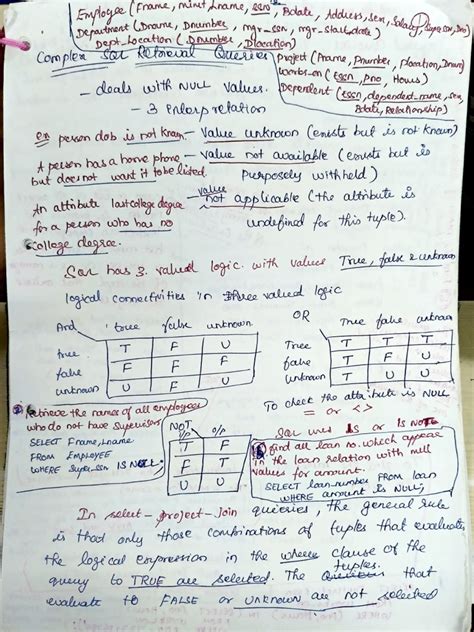 Employee (Fname, minit, Lname, ssn, Bdate, Address, sex, Salary, superssn, Dno)
Department (Dname, Dnumber, mgr-ssn, mgr-startdate)
Dept_Location (Dnumber, Dlocation)
Complex SQL Retrieval Queries
Project (Pname, Pnumber, Plocation, Dnum)
Works-on (Essn, Pno, Hours)
Dependent (Essn, dependent_name, sex,
Bdate, Relationship)
- deals with NULL values.
- 3 interpretation
ex person dob is not known - Value unknown (exists but is not known)
A person has a home phone - Value not available (exists but is
but does not want it to be listed. purposely withheld)
An attribute last college degree - value not applicable (the attribute is
for a person who has no undefined for this tuple).
college degree.
SQL has 3 valued logic. with values True, false & unknown
logical connectivities in three valued logic
And true false unknown
true T F U
false F F F
unknown U F U
OR
True false unknown
True T T T
false T F U
unknown T U U
To check the attribute is NULL
= or <>
SQL uses IS or IS NOT
Retrieve the names of all employees
who do not have Supervisors
SELECT Fname, Lname
FROM Employee
WHERE Super_ssn IS NULL;
NOT
I/P O/P
T F
F T
U U
find all loan no. which appear
in the loan relation with null
values for amount.
SELECT loan-number FROM loan
WHERE amount is NULL;
In select-project-join queries, the general rule
is that only those combinations of tuples that evaluate
the logical expression in the where clause of the
query to TRUE are selected. The tuples that
evaluate to FALSE or UNKNOWN are not selected